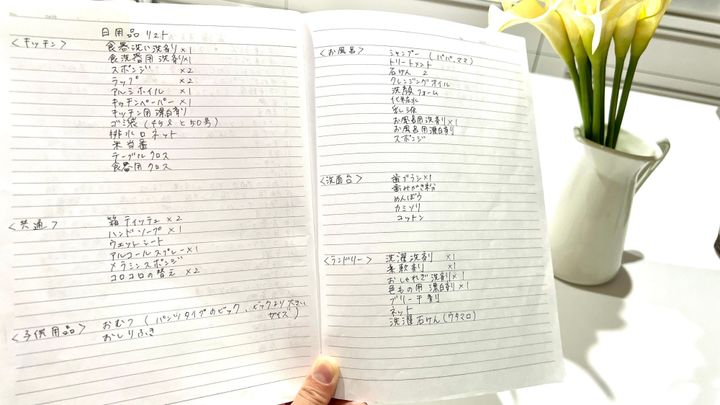 日用品リスト
<キッチン>
食器洗い洗剤×1
食洗器用洗剤×1
スポンジ ×2
ラップ ×2
アルミホイル ×1
キッチンペーパー×1
キッチン用漂白剤
ゴミ袋(45ℓと50号)
排水口ネット
米当番
テーブルクロス
食器用クロス
<共通>
箱ティッシュ×2
ハンドソープ×1
ウェットシート
アルコールスプレー×1
メラミンスポンジ
コロコロの替え ×2
<子供用品>
おむつ(パンツタイプのビッグ、ビッグより大きいサイズ)
おしりふき
<お風呂>
シャンプー(パパ、ママ)
トリートメント
石けん 2
クレンジングオイル
洗顔フォーム
化粧水
乳液
お風呂用洗剤×1
お風呂用漂白剤
スポンジ
<洗面台>
歯ブラシ×1
歯みがき粉
めんぼう
カミソリ
コットン
<ランドリー>
洗濯洗剤 ×1
柔軟剤 ×1
おしゃれぎ洗剤×1
色もの用漂白剤×1
ブリーチ剤
ネット
洗濯石けん(ウタマロ)